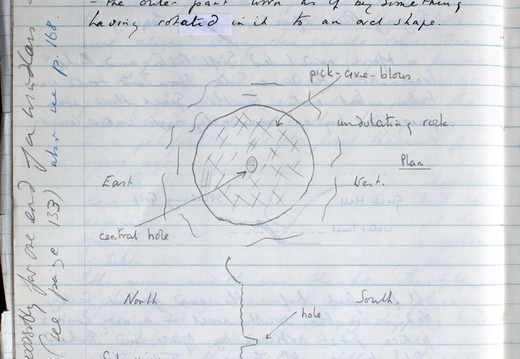 - the outer part worn as if by something
having rotated in it to an oval shape.
pick-axe-blows.
undulating rock.
Plan
East
West.
central hole
North
South.
hole
for one end of a windlass
(see page 133). also see p. 168.